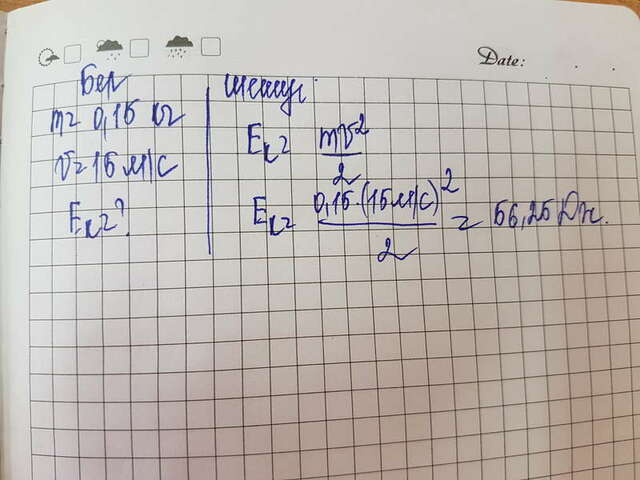 Date:
Бер
m = 0,16 кг
υ = 16 м/с
Eк = ?
Шешуі:
Eк = mυ²/2
Eк = 0,16·(16м/с)²/2 = 66,25 Дж.